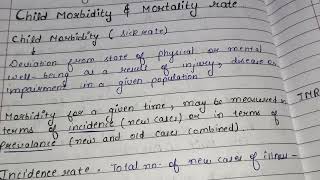 Child Morbidity & Mortality rate
Child Morbidity (sick rate)
Deviation from state of physical or mental
well-being as a result of injury, disease or
impairment in a given population
Morbidity for a given time, may be measured in
terms of incidence (new cases) or in terms of
Prevalance (new and old cases combined).
Incidence rate. Total no. of new cases of illness-